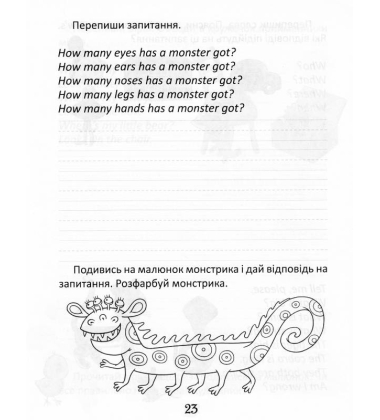 Перепиши запитання.
How many eyes has a monster got?
How many ears has a monster got?
How many noses has a monster got?
How many legs has a monster got?
How many hands has a monster got?
Подивись на малюнок монстрика і дай відповідь на
запитання. Розфарбуй монстрика.
23